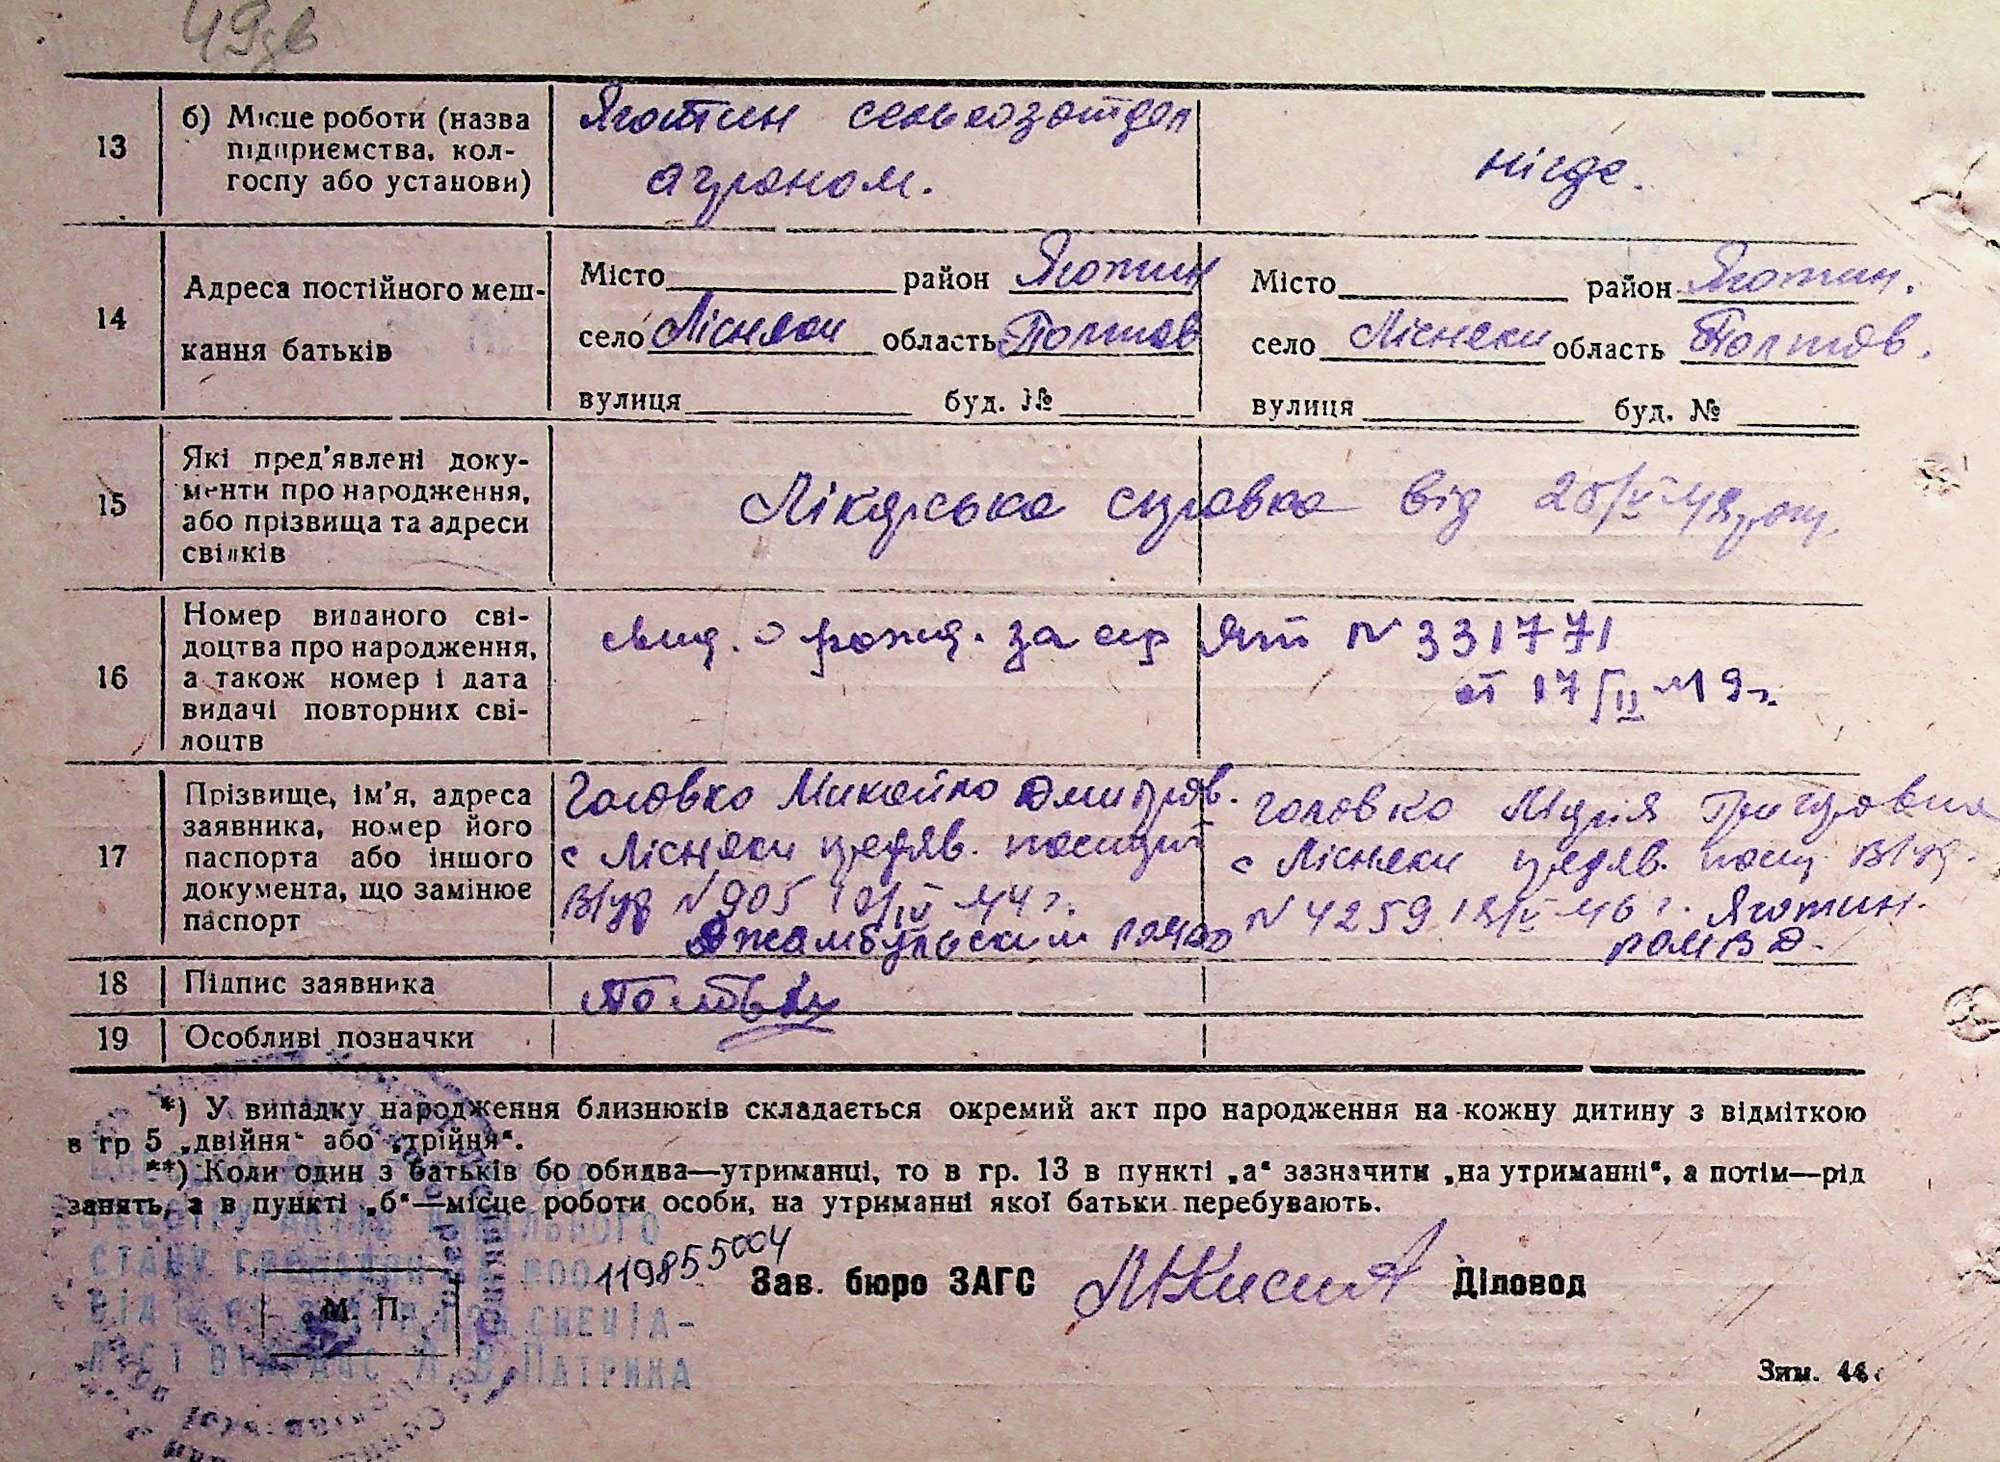 49зв
13
б) Місце роботи (назва
підприємства, кол-
госпу або установи)
Яготин
агроном.
нігде.
14
Адреса постійного меш-
кання батьків
Місто район Яготин
село Лісняки область Полтав
вулиця буд. №
Місто район Яготин.
село Лісняки область Полтав.
вулиця буд. №
15
Які пред'явлені доку-
менти про народження,
або прізвища та адреси
свідків
Лікарська справка від
16
Номер виданого сві-
доцтва про народження,
а також номер і дата
видачі повторних сві-
доцтв
свид. о рожд. за сер ЯП N 331771
от 17/II 49 г.
17
Прізвище, ім'я, адреса
заявника, номер його
паспорта або іншого
документа, що замінює
паспорт
Головко Микайло Дмитров.
с Лісняки предяв. паспорт
N 905 44 г.
Джамбульским
Головко Марія Григоровна
с Лісняки предяв. пасп.
N 4259 46 г. Яготин.
РОМВД.
18
Підпис заявника
19
Особливі позначки
*) У випадку народження близнюків складається окремий акт про народження на кожну дитину з відміткою
в гр 5 „двійня“ або „трійня“.
**) Коли один з батьків бо обидва—утриманці, то в гр. 13 в пункті „а“ зазначити „на утриманні“, а потім—рід
занять, а в пункті „б“—місце роботи особи, на утриманні якої батьки перебувають.
М. П.
119855004
Зав. бюро ЗАГС
Діловод
Патрика
Зям. 44